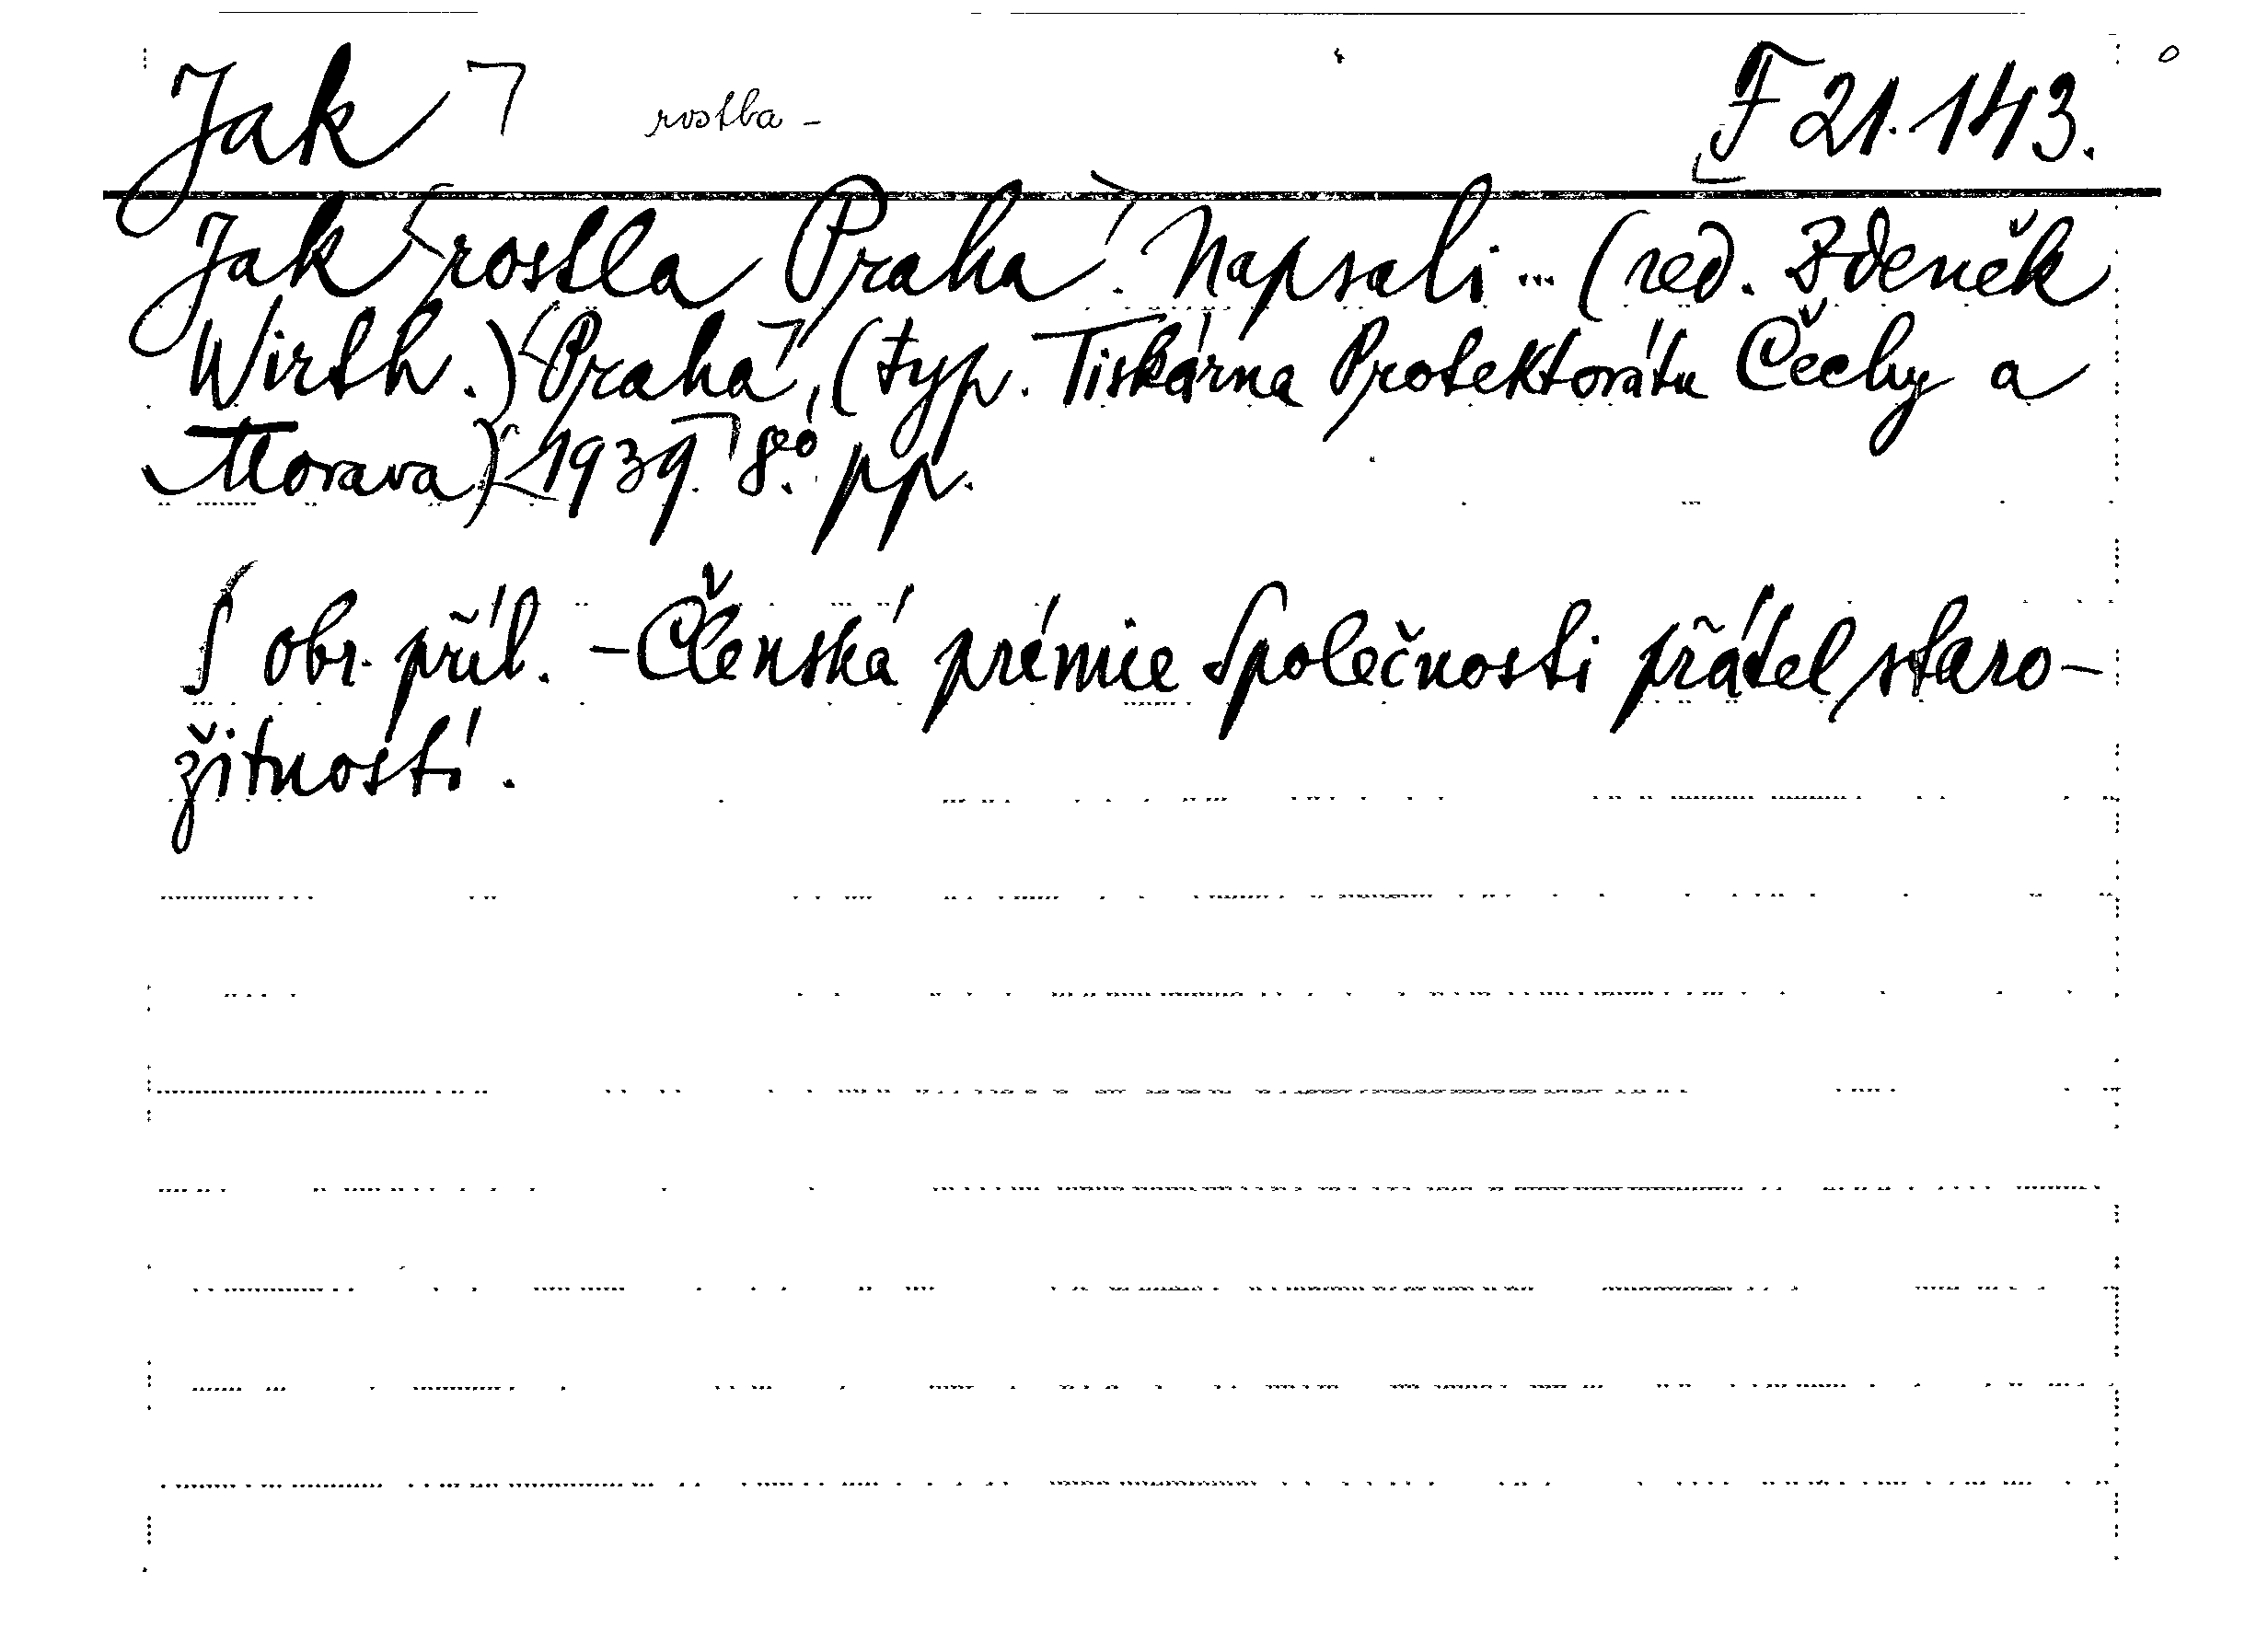 Jak rostla - F 21.143.
Jak rostla Praha. Napsali ... (red. Zdeněk
Wirth.) Praha, (typ. Tiskárna Protektorátu Čechy a
Morava) 1939. 8° pp.
S obr. příl. - Členská prémie Společnosti přátel staro-
žitností.